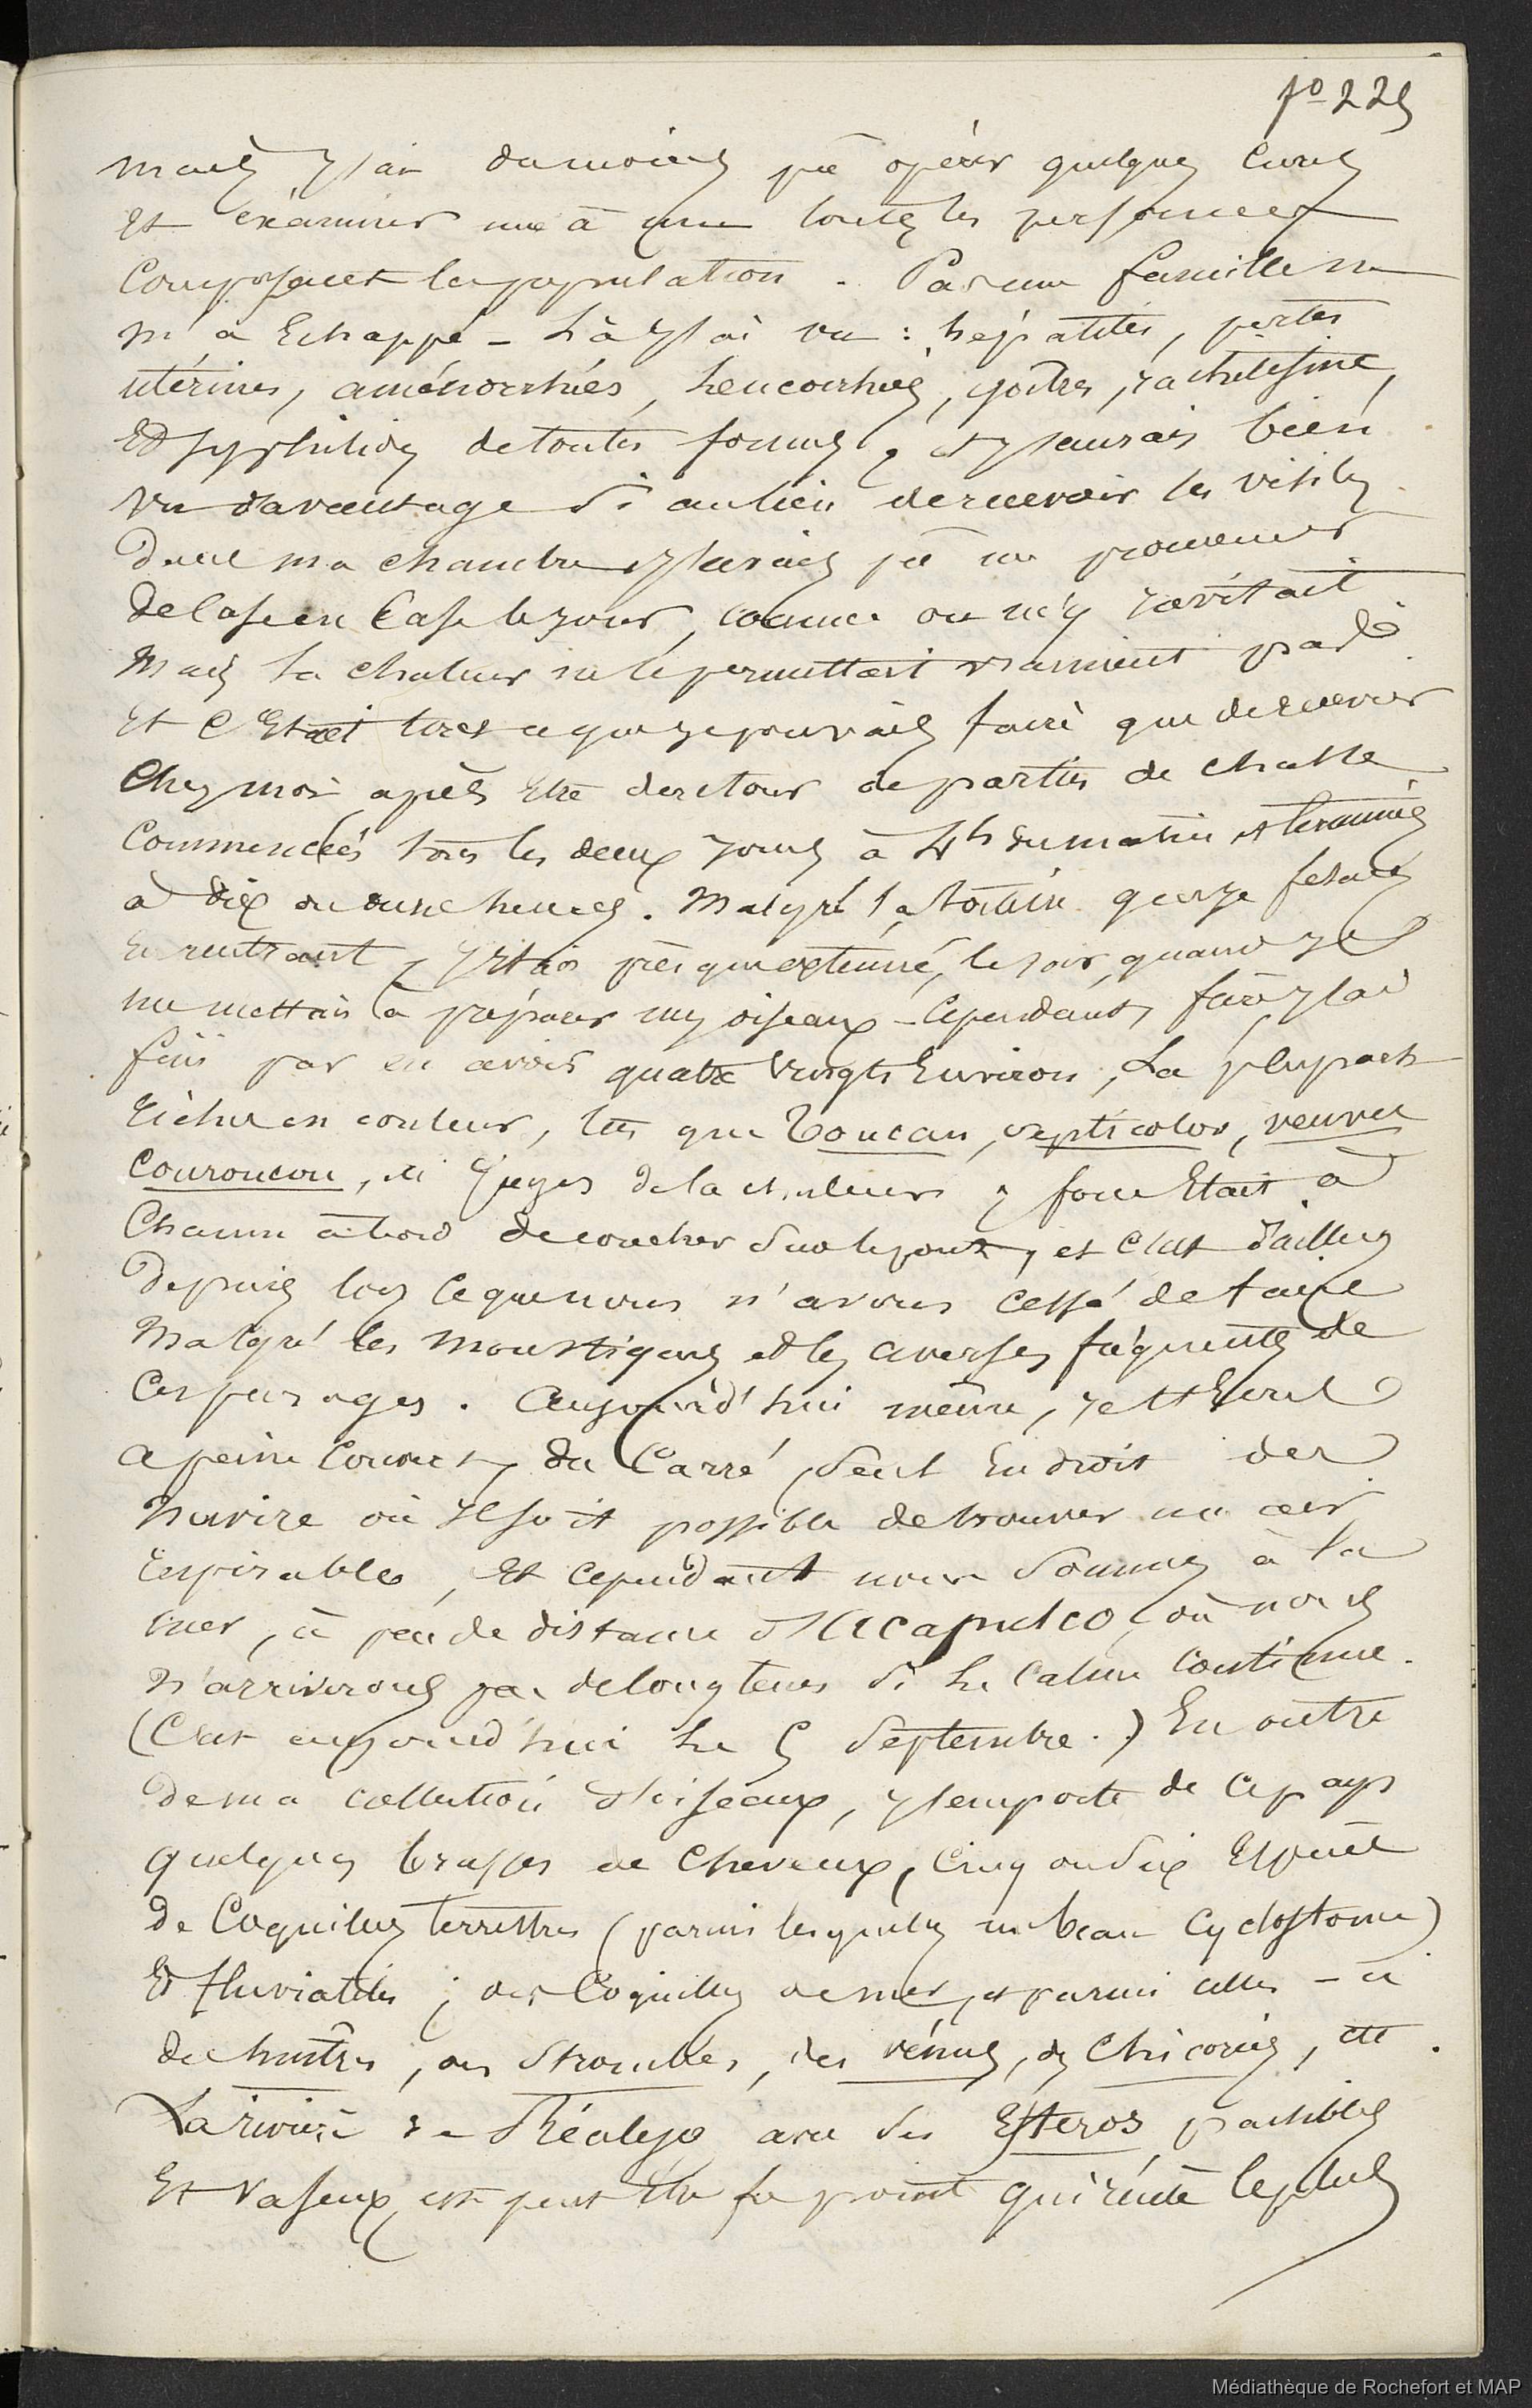 fo 225
mais j'ai du moins pu opérer quelques cures
et examiner une à une toutes les personnes
composant la population. Pas une famille ne
m'a echappé - Là j'ai vu : hépatites, pertes
utérines, aménorrhées, leucorrhées, goîtres, rachitisme,
et syphilis de toutes formes, et j'aurais bien
vu davantage si au lieu de recevoir les visites
dans ma chambre j'avais pu me promener
de case en case le jour, comme on m'y invitait
Mais la chaleur ne le permettait vraiment pas
et c'était tout ce que je pouvais faire que de recevoir
chez moi après être de retour de parties de chasse
commencées tous les deux jours à 4h du matin et terminées
à dix ou onze heures. Malgré la que je fesais
en rentrant, j'étais presque exténué, le soir, quand je
me mettais à préparer mes oiseaux - Cependant j'ai
fini par en avoir quatre vingts environ, La plupart
riches en couleur, tels que Toucan, septicolor, veuves
couroucou, &
chacun à bord de coucher sur le pont, et c'est d'ailleurs
depuis lors ce que nous n'avons cessé de faire
malgré les moustiques et les averses fréquentes de
ces parages. Aujourd'hui même, je
à peine couvert, du Carré, seul endroit du
navire où il soit possible de trouver un air
respirable, et cependant nous sommes à la
mer, à peu de distance d'Acapulco, où nous
n'arriverons pas de longtems si le calme continue.
(C'est aujourd'hui le 5 Septembre.) En outre
de ma collection d'oiseaux, j'emporte de ce pays
quelques brasses de cheveux, cinq ou six espèces
de Coquilles terrestres (parmi lesquelles un beau Cyclostome)
et fluviatiles ; des Coquilles de mer, et parmi celles-ci
des huîtres, des Strombes, des vénus, des Chicorées, etc.
La rivière de Réalejo avec ses Esteros paisibles
et vaseux est peut être le point qui le plus